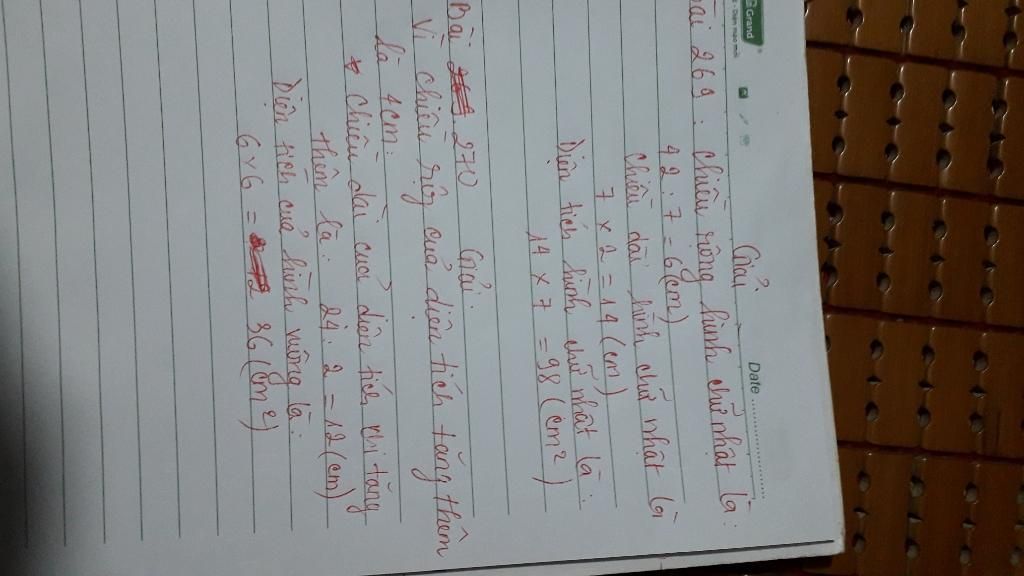 Grand
Date
Giải
Bài 269: Chiều rộng hình chữ nhật là:
42 : 7 = 6 (cm)
Chiều dài hình chữ nhật là
7 × 2 = 14 (cm)
Diện tích hình chữ nhật là:
14 × 7 = 98 (cm²)
Bài 270 Giải:
Vì chiều rộng quả diện tích tăng thêm
là 4cm:
Chiều dài cuả diện tích khi tăng
thêm là: 24 : 2 = 12 (cm)
Diện tích của hình vuông là:
6 × 6 = 36 (cm²)